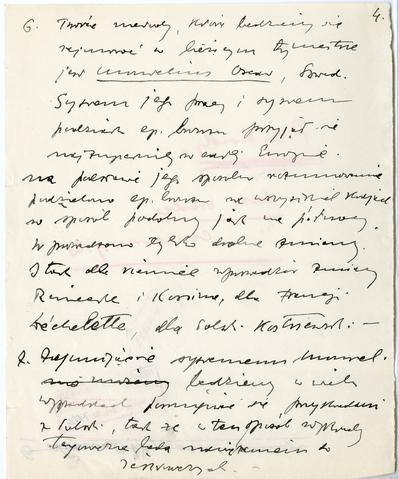 4.
6. Twórcą metody, którą będziemy się
zajmować w bieżącym trymestrze
jest Montelius Oscar, Szwed.
System jego pracy i system
podziału ep. bronzu przyjął się
najzupełniej w całej Europie.
na podstawie jego sposobu rozumowania
podzielono ep. bronzu we wszystkich krajach
w sposób podobny jak na północy.
Wprowadzono tylko drobne zmiany.
I tak dla Niemiec wprowadził zmiany
Reinecke i Kossina, dla Francji
Déchelette, dla Polski Kostrzewski. —
7. Zajmując się systemem Montel.
będziemy w wielu
wypadkach posługiwać się przykładami
z Polski, tak że w ten sposób wykłady
tegoroczne będą nawiązaniem do